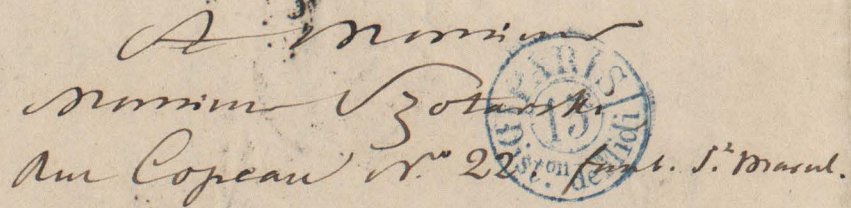 A Monsieur
Monsieur Szotarski
Rue Copeau No 22. faub. St. Marcel.
PARIS
13
Distr.on de Midi